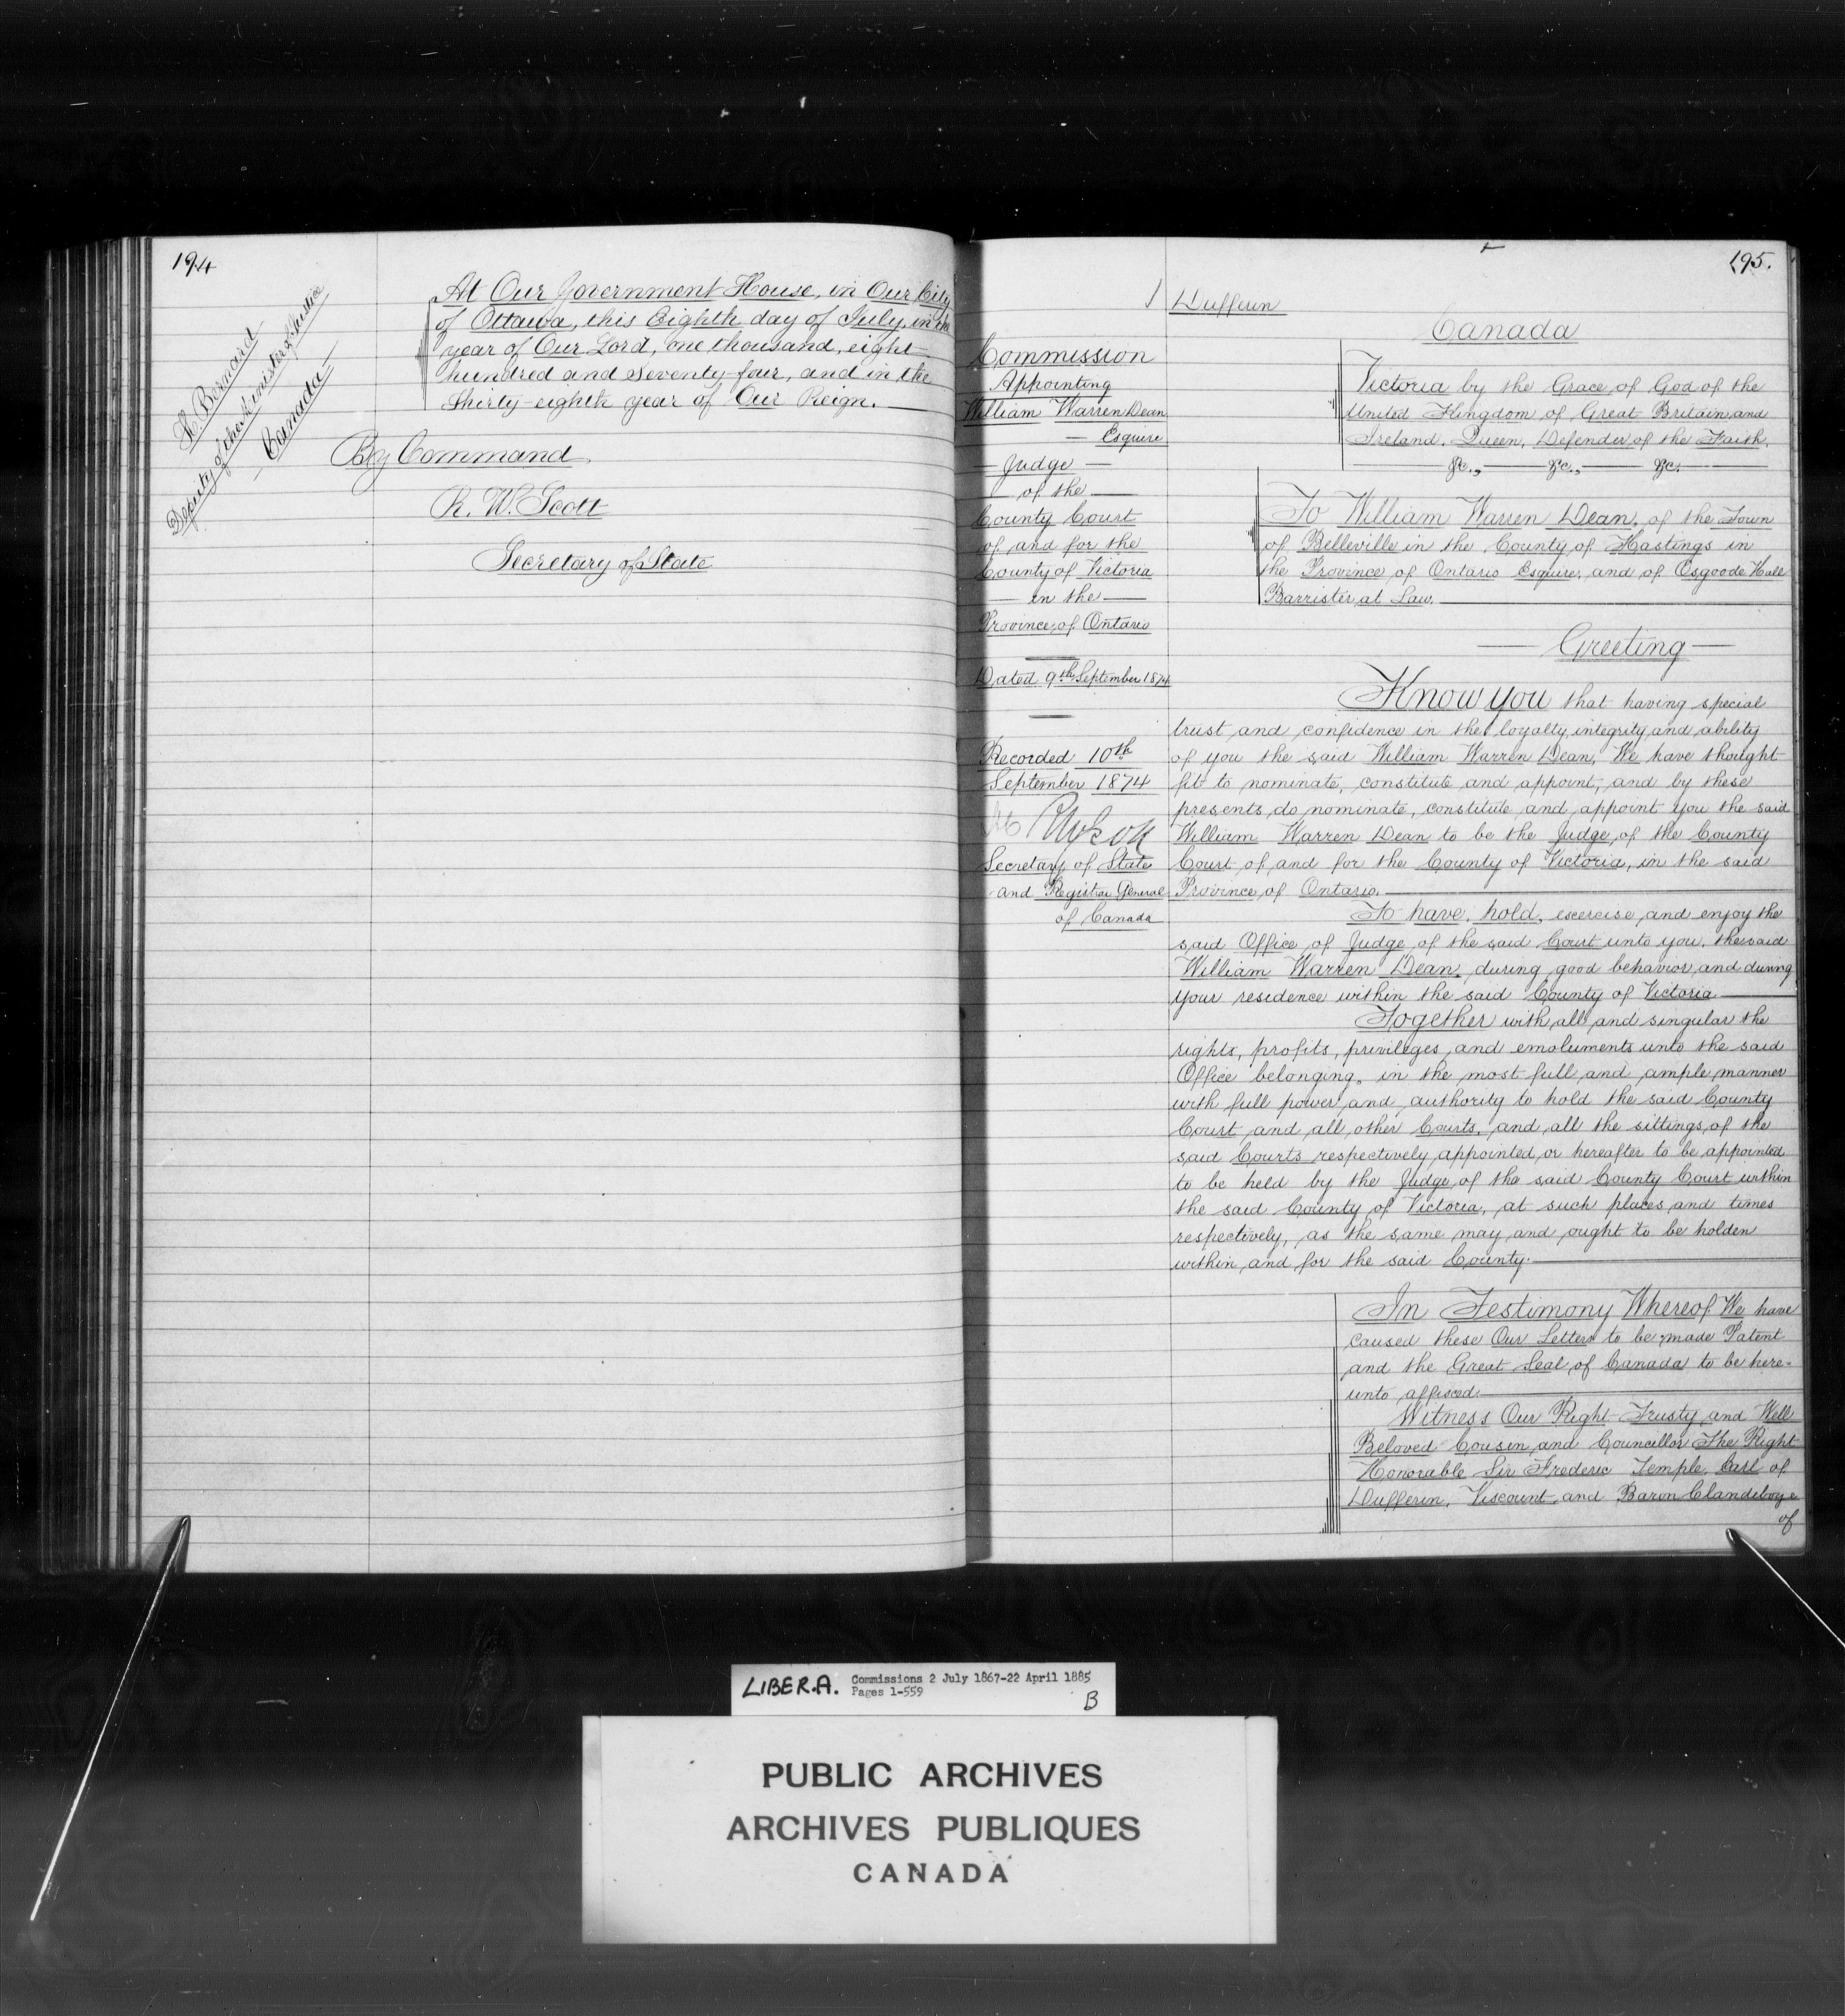 194
H. Bernard
Deputy of the Minister of Justice
Canada
At Our Government House, in Our City
of Ottawa, this Eighth day of July, in the
year of Our Lord, one thousand, eight
hundred and seventy-four, and in the
thirty-eighth year of Our Reign.
By Command
R. W. Scott
Secretary of State
195.
Dufferin
Canada
Commission
Appointing
William Warren Dean
Esquire
Judge
of the
County Court
of and for the
County of Victoria
in the
Province of Ontario
Dated 9th September 1874
Recorded 10th
September 1874
RWScott
Secretary of State
and Registrar General
of Canada
Victoria by the Grace of God of the
United Kingdom of Great Britain and
Ireland, Queen, Defender of the Faith,
&c., &c., &c.
To William Warren Dean, of the Town
of Belleville in the County of Hastings in
the Province of Ontario Esquire, and of Osgoode Hall
Barrister at Law.
Greeting
Know you that having special
trust and confidence in the loyalty, integrity and ability
of you the said William Warren Dean, We have thought
fit to nominate, constitute and appoint, and by these
presents do nominate, constitute and appoint you the said
William Warren Dean to be the Judge of the County
Court of and for the County of Victoria, in the said
Province of Ontario.
To have, hold, exercise and enjoy the
said Office of Judge of the said Court unto you, the said
William Warren Dean, during good behavior and during
your residence within the said County of Victoria
Together with all and singular the
rights, profits, privileges and emoluments unto the said
Office belonging, in the most full and ample manner
with full power and authority to hold the said County
Court and all other Courts, and all the sittings of the
said Courts respectively appointed or hereafter to be appointed
to be held by the Judge of the said County Court within
the said County of Victoria, at such places and times
respectively, as the same may and ought to be holden
within and for the said County.
In Testimony Whereof, We have
caused these Our Letters to be made Patent
and the Great Seal of Canada to be here-
unto affixed.
Witness Our Right Trusty and Well
Beloved Cousin and Councillor The Right
Honorable Sir Frederic Temple, Earl of
Dufferin, Viscount and Baron Clandeboye
of
LIBER.A. Commissions 2 July 1867-22 April 1885
Pages 1-559
B
PUBLIC ARCHIVES
ARCHIVES PUBLIQUES
CANADA